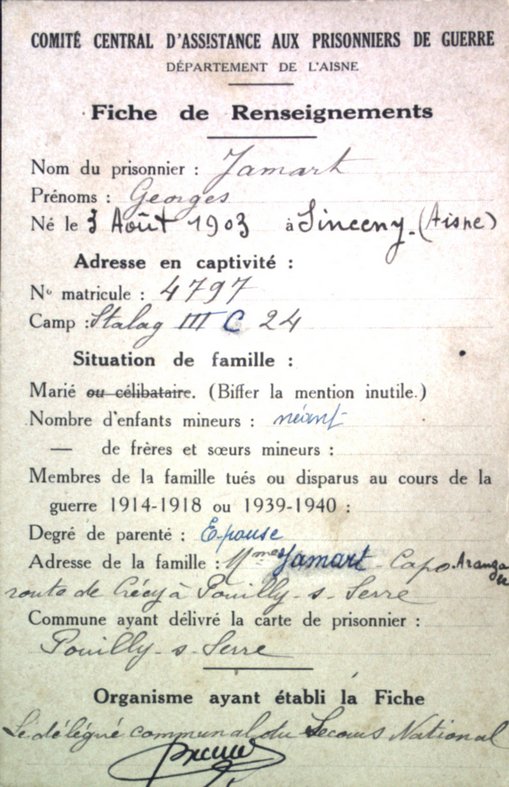 COMITÉ CENTRAL D'ASSISTANCE AUX PRISONNIERS DE GUERRE
DÉPARTEMENT DE L'AISNE
Fiche de Renseignements
Nom du prisonnier : Jamart
Prénoms : Georges
Né le 3 Août 1903 à Sinceny-(Aisne)
Adresse en captivité :
No matricule : 4797
Camp : Stalag III C 24
Situation de famille :
Marié ou célibataire. (Biffer la mention inutile.)
Nombre d'enfants mineurs : néant
— de frères et sœurs mineurs :
Membres de la famille tués ou disparus au cours de la
guerre 1914-1918 ou 1939-1940 :
Degré de parenté : Epouse
Adresse de la famille : Mme Jamart - Capo
route de Crécy à Pouilly-s-Serre
Commune ayant délivré la carte de prisonnier :
Pouilly-s-Serre
Organisme ayant établi la Fiche
Le délégué communal du Secours National